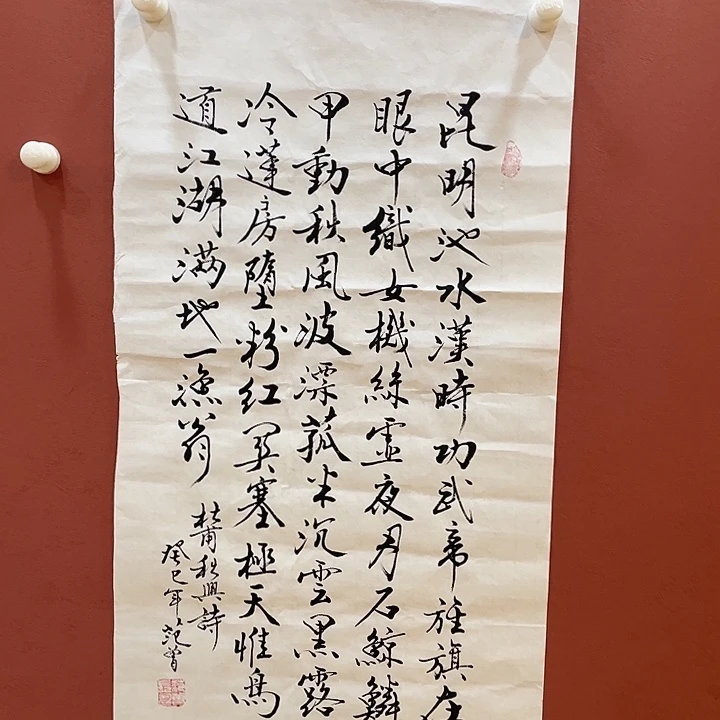 昆明池水漢時功武帝旌旗在
眼中織女機絲虛夜月石鯨鱗
甲動秋風波漂菰米沉雲黑露
冷蓮房墮粉紅関塞極天惟鳥
道江湖满地一漁翁
杜甫秋興詩
癸巳年范曾